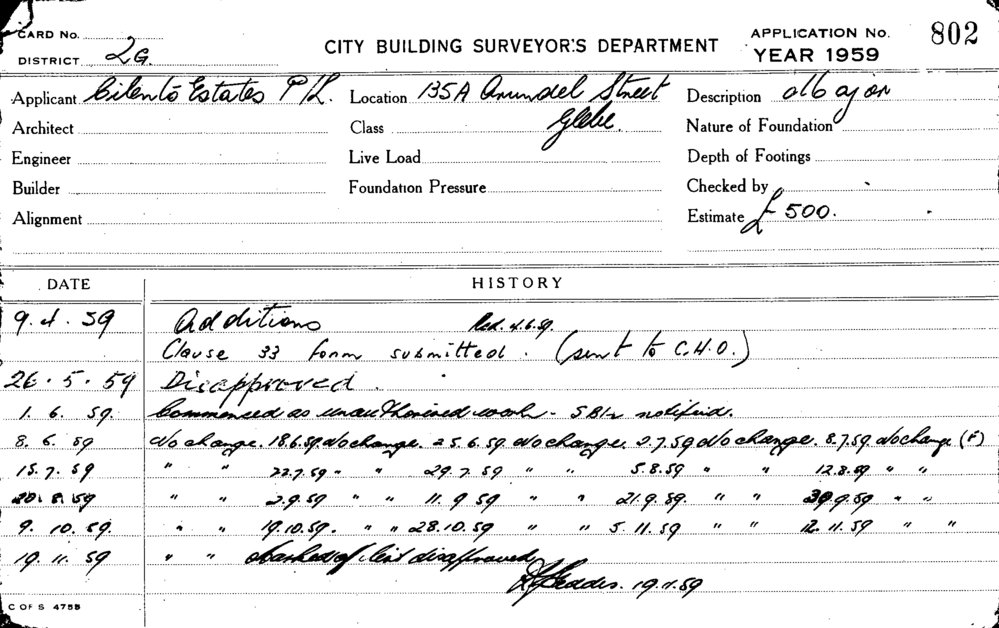 CARD No.
CITY BUILDING SURVEYOR'S DEPARTMENT
APPLICATION No. 802
DISTRICT 2G.
YEAR 1959
Applicant Cilento Estates P/L. Location 135A Arundel Street Description
Architect Class Glebe. Nature of Foundation
Engineer Live Load Depth of Footings
Builder Foundation Pressure Checked by
Alignment Estimate £ 500.
DATE HISTORY
9. 4. 59 Additions Red. 4.6.59.
Clause 33 form submitted. (sent to C.H.O.)
26. 5. 59 Disapproved.
1. 6. 59. Commenced as unauthorised work - notified.
8. 6. 59 No change. 18.6.59. No change. 25.6.59. No change. 2.7.59 No change. 8.7.59. No change (F)
15. 7. 59 " " 22.7.59 " " 29.7.59 " " 5.8.59 " " 12.8.59 " "
20. 8. 59 " " 2.9.59 " " 11.9.59 " " 21.9.59. " " 30.9.59 " "
9. 10. 59. " " 19.10.59. " " 28.10.59 " " 5.11.59 " " 12.11.59 " "
19. 11. 59 " " disapproved
19.11.59
C OF S 475B